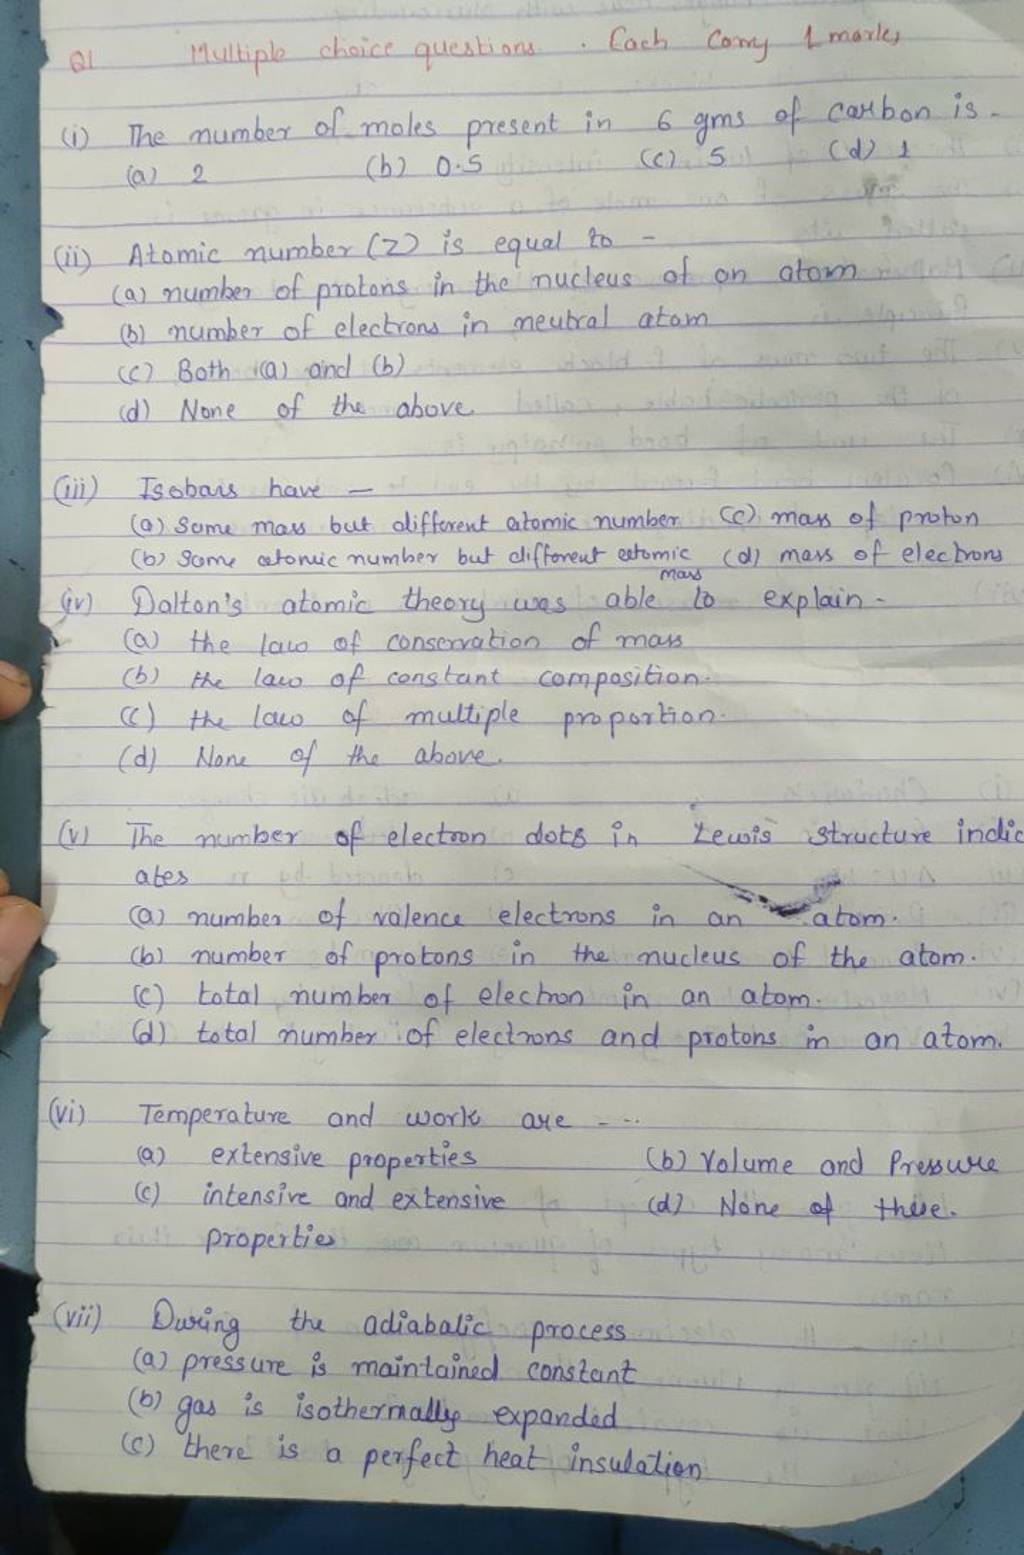 Q1 Multiple choice questions. Each Carry 1 marks
(i) The number of moles present in 6 gms of carbon is -
(a) 2 (b) 0.5 (c) 5 (d) 1
(ii) Atomic number (Z) is equal to -
(a) number of protons in the nucleus of an atom
(b) number of electrons in neutral atom
(c) Both (a) and (b)
(d) None of the above
(iii) Isobars have -
(a) Same mass but different atomic number (c) mass of proton
(b) Same atomic number but different atomic mass (d) mass of electrons
(iv) Dalton's atomic theory was able to explain -
(a) the law of conservation of mass
(b) the law of constant composition.
(c) the law of multiple proportion.
(d) None of the above.
(v) The number of electron dots in Lewis structure indic
ates
(a) number of valence electrons in an atom.
(b) number of protons in the nucleus of the atom.
(c) total number of electron in an atom.
(d) total number of electrons and protons in an atom.
(vi) Temperature and work are - ..
(a) extensive properties (b) Volume and Pressure
(c) intensive and extensive (d) None of these.
properties
(vii) During the adiabatic process
(a) pressure is maintained constant
(b) gas is isothermally expanded
(c) there is a perfect heat insulation